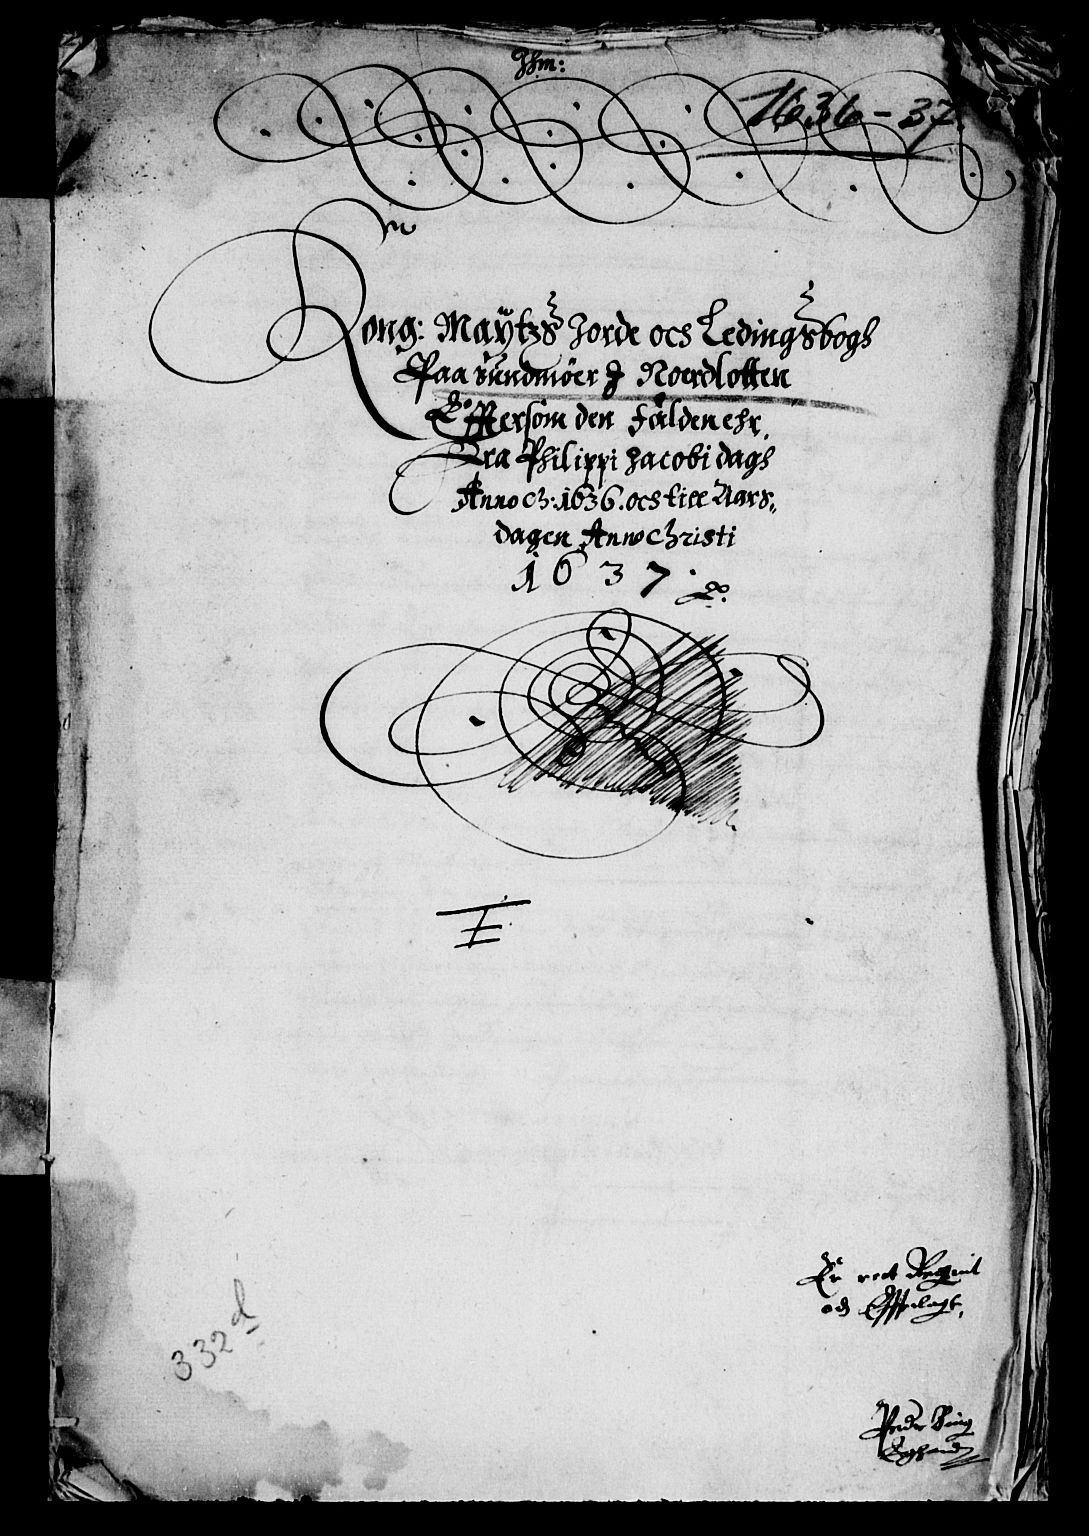 Jhm:
1636-37.
Kong: Maÿtzs Jorde och Ledingsbogh
Paa Sundmöer J Noerdlotten
Effersom den Falden ehr,
Fra Philippi Jacobi dagh
Anno Ch: 1636. och till Aars,,
dagen Anno Christi
1637. &c.
E
Er ret
och
Peder
332d